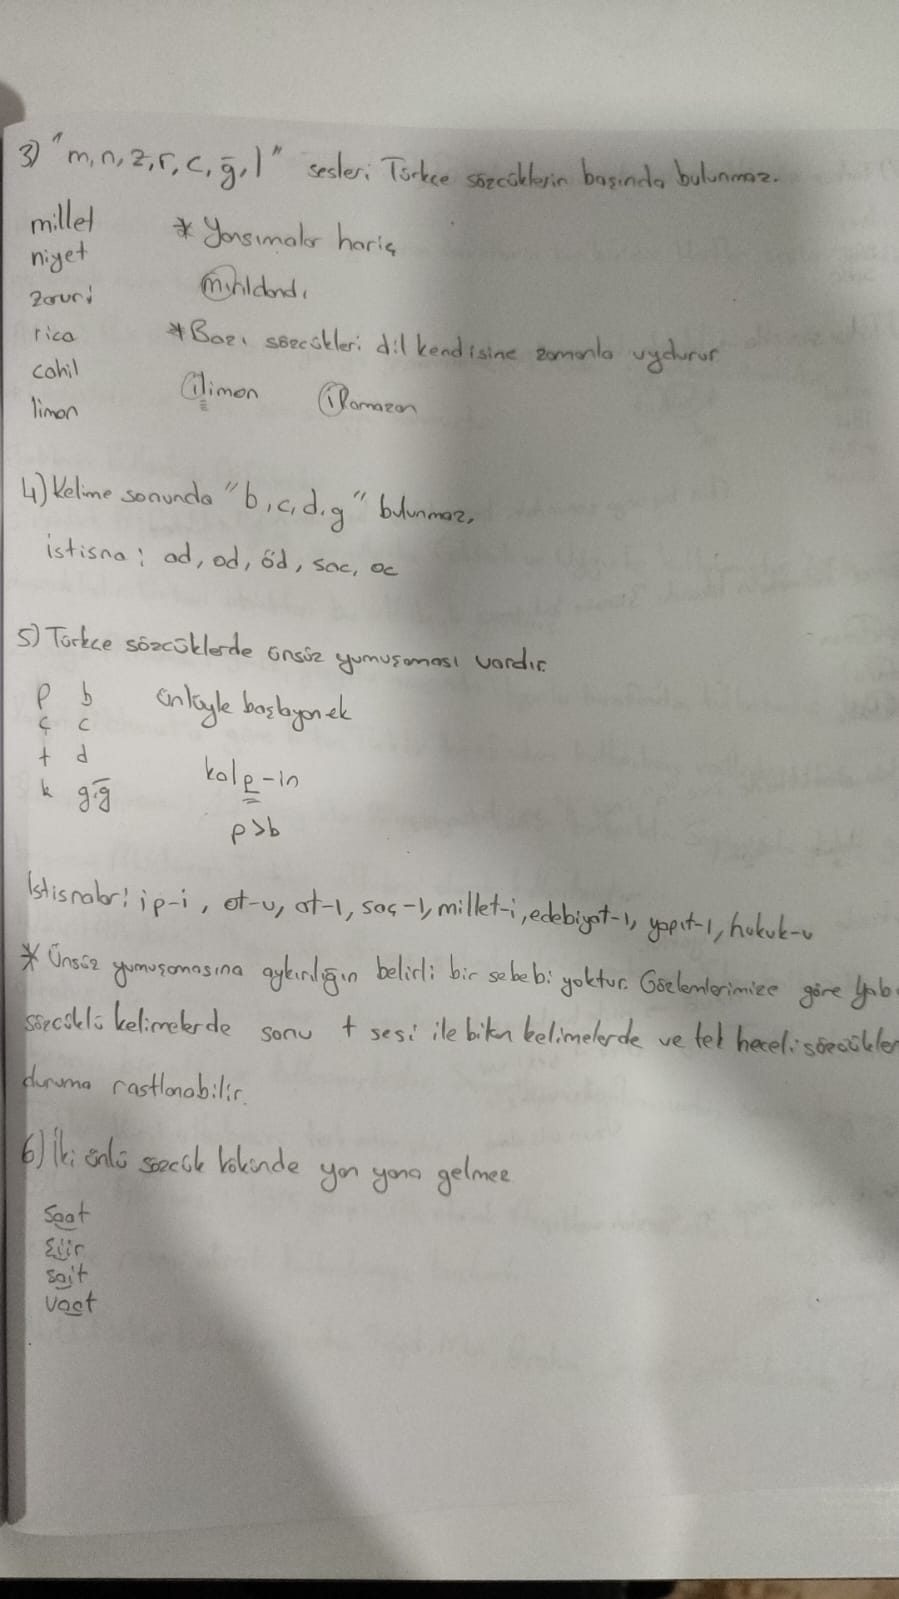 3) "m, n, z, r, c, ğ, l" sesleri Türkçe sözcüklerin başında bulunmaz.
millet
* Yansımalar hariç
niyet
mırıldandı
zaruri
rica
* Bazı sözcükleri dil kendisine zamanla uydurur
cahil
ilimon iRamazan
limon
4) Kelime sonunda "b, c, d, g" bulunmaz,
istisna: ad, od, öd, sac, oc
5) Türkçe sözcüklerde ünsüz yumuşaması vardır.
p b ünlüyle başlayan ek
ç c
t d
k g,ğ
kalp-in
p>b
İstisnalar: ip-i, et-u, at-ı, saç-ı, millet-i, edebiyat-ı, yapıt-ı, hukuk-u
* Ünsüz yumuşamasına aykırılığın belirli bir sebebi yoktur. Gözlemlerimize göre yab
sözcüklü kelimelerde sonu t sesi ile biten kelimelerde ve tek heceli sözcükler
duruma rastlanabilir.
6) İki ünlü sözcük kökünde yan yana gelmez
saat
şiir
sait
vaat